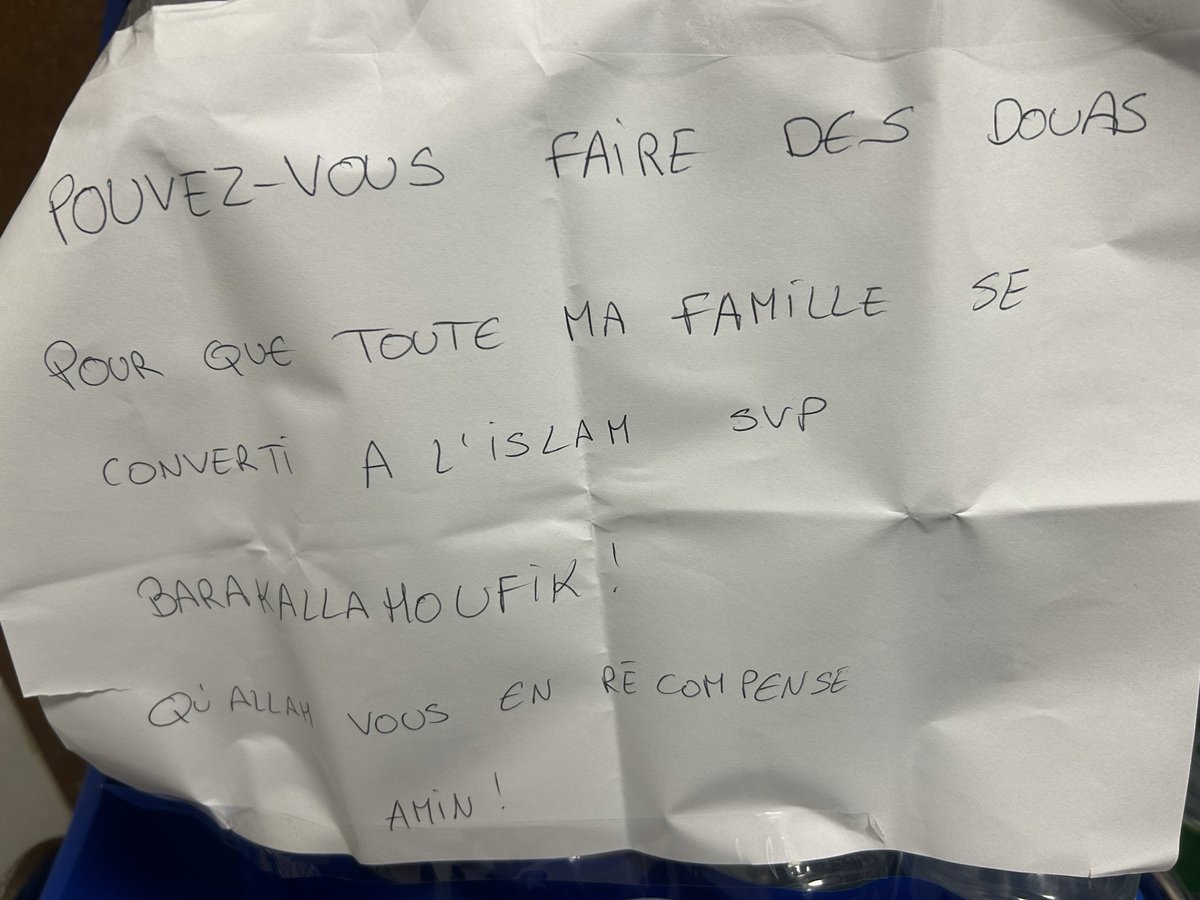 POUVEZ-VOUS FAIRE DES DOUAS
POUR QUE TOUTE MA FAMILLE SE
CONVERTI A L'ISLAM SVP
BARAKALLAHOUFIK !
QU'ALLAH VOUS EN RÉCOMPENSE
AMIN !